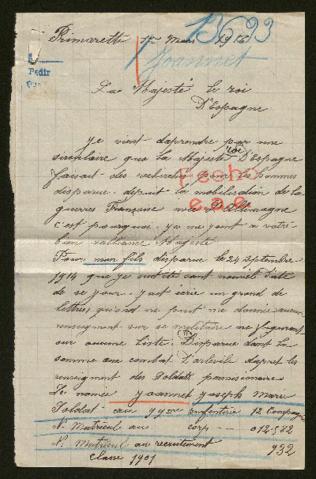 Primarette 1er mars 1916
13693
Joannet
Pedir
Sa Majesté le roi
D'Espagne
Je vient daprendre par une
sirculaire que la Majesté roi D'Espagne
faisait des recherches pour les hommes
disparue depuit la mobilisation de la
guerres Française avec l'Allemagne
c'est pourquoi je me joint a votre
bien vaillance Majesté
Pour mon fils disparue le 24 septembre
1914 que je suit été sant nouvelle date
de se jour j'ait écrie un grand de
lettres, qui s'ind ne point me donnée aucun
renseignment sur se militaire ne figurant
sur aucune liste Disparue dant la
somme aux combat d'arleville daprest les
renseigment des Soldats prisonnières
Le nomée Joannet Joseph Marie
Soldat au 99me enfanterie 12 Compagnie
N. Matricul au corp 012532
N. Matricul au recrutement 732
classe 1901